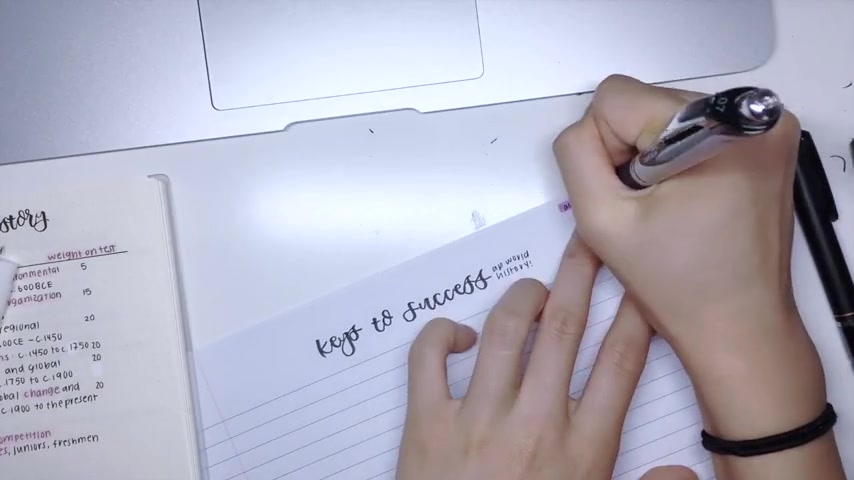 story
weight on test
ronmental 5
. 600BCE
rganization 15
regional 20
00CE - c.1450
ns: c.1450 to c.1750 20
and global 20
.1750 to c.1900
obal change and 20
c.1900 to the present
ompetition
es, juniors, freshmen
keys to success
ap world
history!
07